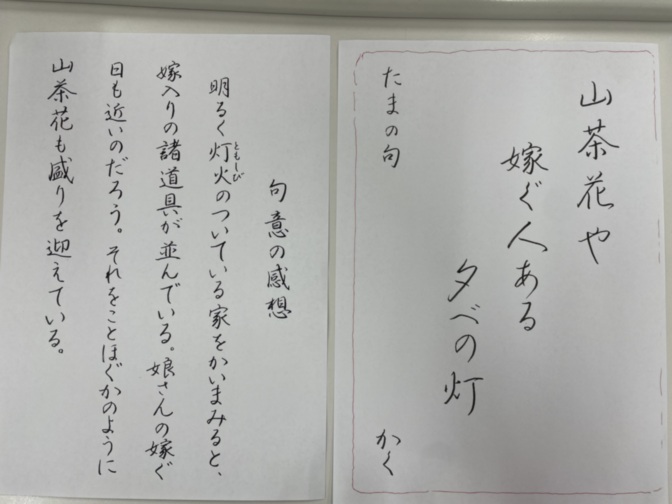 山茶花や
嫁ぐ人ある
夕べの灯
たまの句
かく
句意の感想
明るく灯火のついている家をかいまみると、
ともしび
嫁入りの諸道具が並んでいる。娘さんの嫁ぐ
日も近いのだろう。それをことほぐかのように
山茶花も盛りを迎えている。